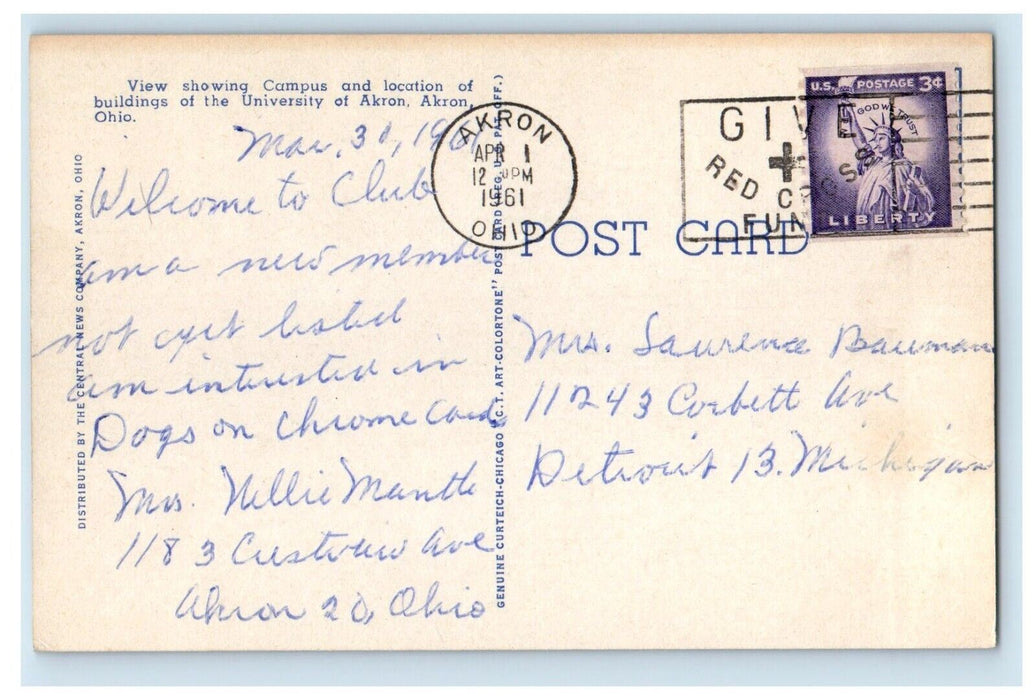 View showing Campus and location of
buildings of the University of Akron, Akron,
Ohio.
Mar. 31, 1961
Welcome to Club
am a new member
not yet listed
am interested in
Dogs on Chrome Cards
Mrs. Nellie Mantle
1183 Crestview Ave
Akron 20, Ohio
DISTRIBUTED BY THE CENTRAL NEWS COMPANY, AKRON, OHIO
GENUINE CURTEICH-CHICAGO "C.T. ART-COLORTONE" POST CARD (REG. U.S. PAT. OFF.)
AKRON
APR 1
12 PM
1961
OHIO
GIVE
RED CROSS
FUN
U.S. POSTAGE 3¢
IN GOD WE TRUST
LIBERTY
POST CARD
Mrs. Laurence Bauman
11243 Corbett Ave
Detroit 13. Michigan